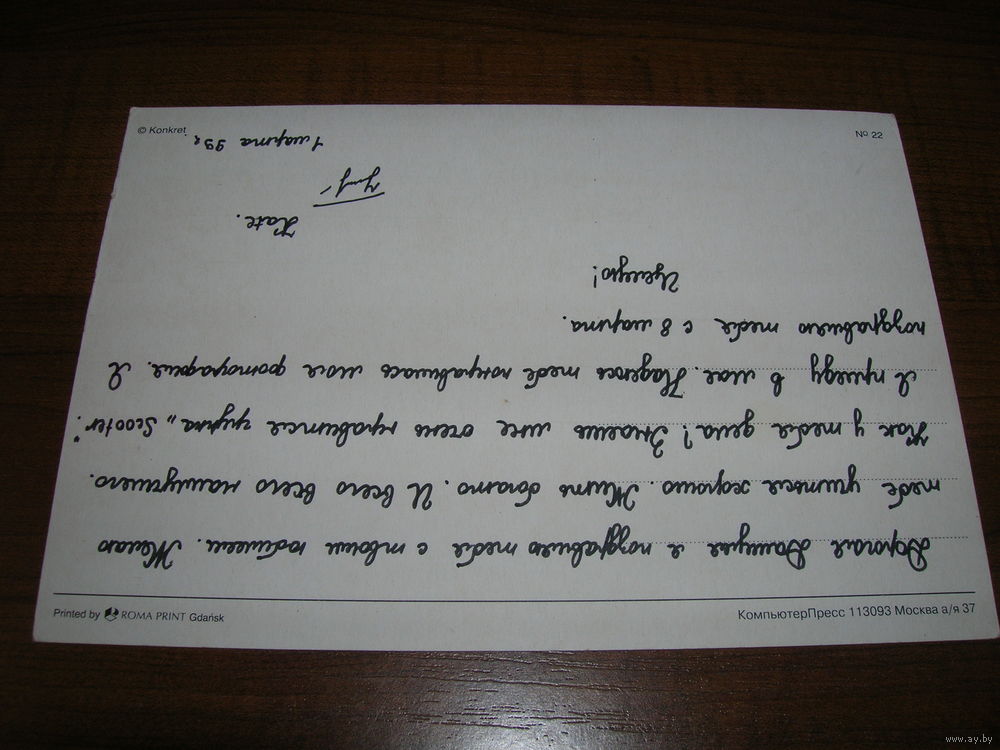 © Konkret
№ 22
Дорогая Данируля я поздравляю тебя с твоим юбилеем. Желаю
тебе учиться хорошо. Жить богато. И всего всего наилучшего.
Как у тебя дела? Знаешь мне очень нравится группа „Scooter".
Я приеду в мае. Надеюсь тебе понравилась моя фотография. Я
поздравляю тебя с 8 марта.
Целую!
Kate.
1 марта 99г.
Printed by ROMA PRINT Gdańsk
КомпьютерПресс 113093 Москва а/я 37
www.ay.by